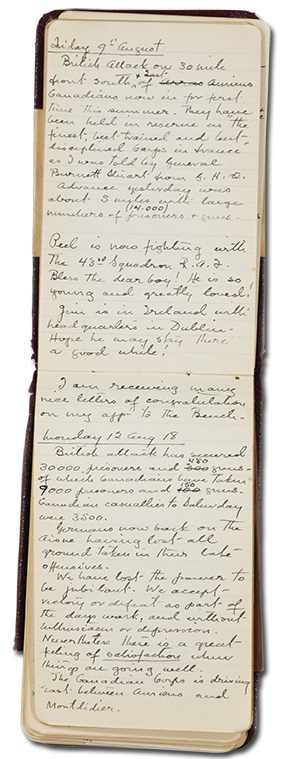 Friday 9th August
British Attack on 30 mile
front South & East of Arras Amiens
Canadians now in for first
time this summer. They have
been held in reserve as "the
finest, best trained and best
disciplined Corps in France"
as I was told by General
Burnett Stuart from G.H.Q.
Advance yesterday was
about 5 miles with large
numbers of prisoners (14.000) & guns.
Peel is now fighting with
the 43rd Squadron R.A.F.
Bless the dear boy! He is so
young and greatly loved!
Jim is in Ireland with
headquarters in Dublin.
Hope he may stay there
a good while!
I am receiving many
nice letters of congratulation
on my appt to the Bench.
Monday 12 Aug 18
British attack has secured
30000 prisoners and 480 guns.
of which Canadians have taken
9000 prisoners and 150 guns.
Canadian casualties to Saturday
were 3500.
Germans now back on the
Aisne having lost all
ground taken in their late
offensives.
We have lost the power to
be jubilant. We accept
victory or defeat as part of
the days work, and without
enthusiasm or depression.
Nevertheless there is a great
feeling of satisfaction when
things are going well.
The Canadian Corps is driving
East between Amiens and
Montdidier.